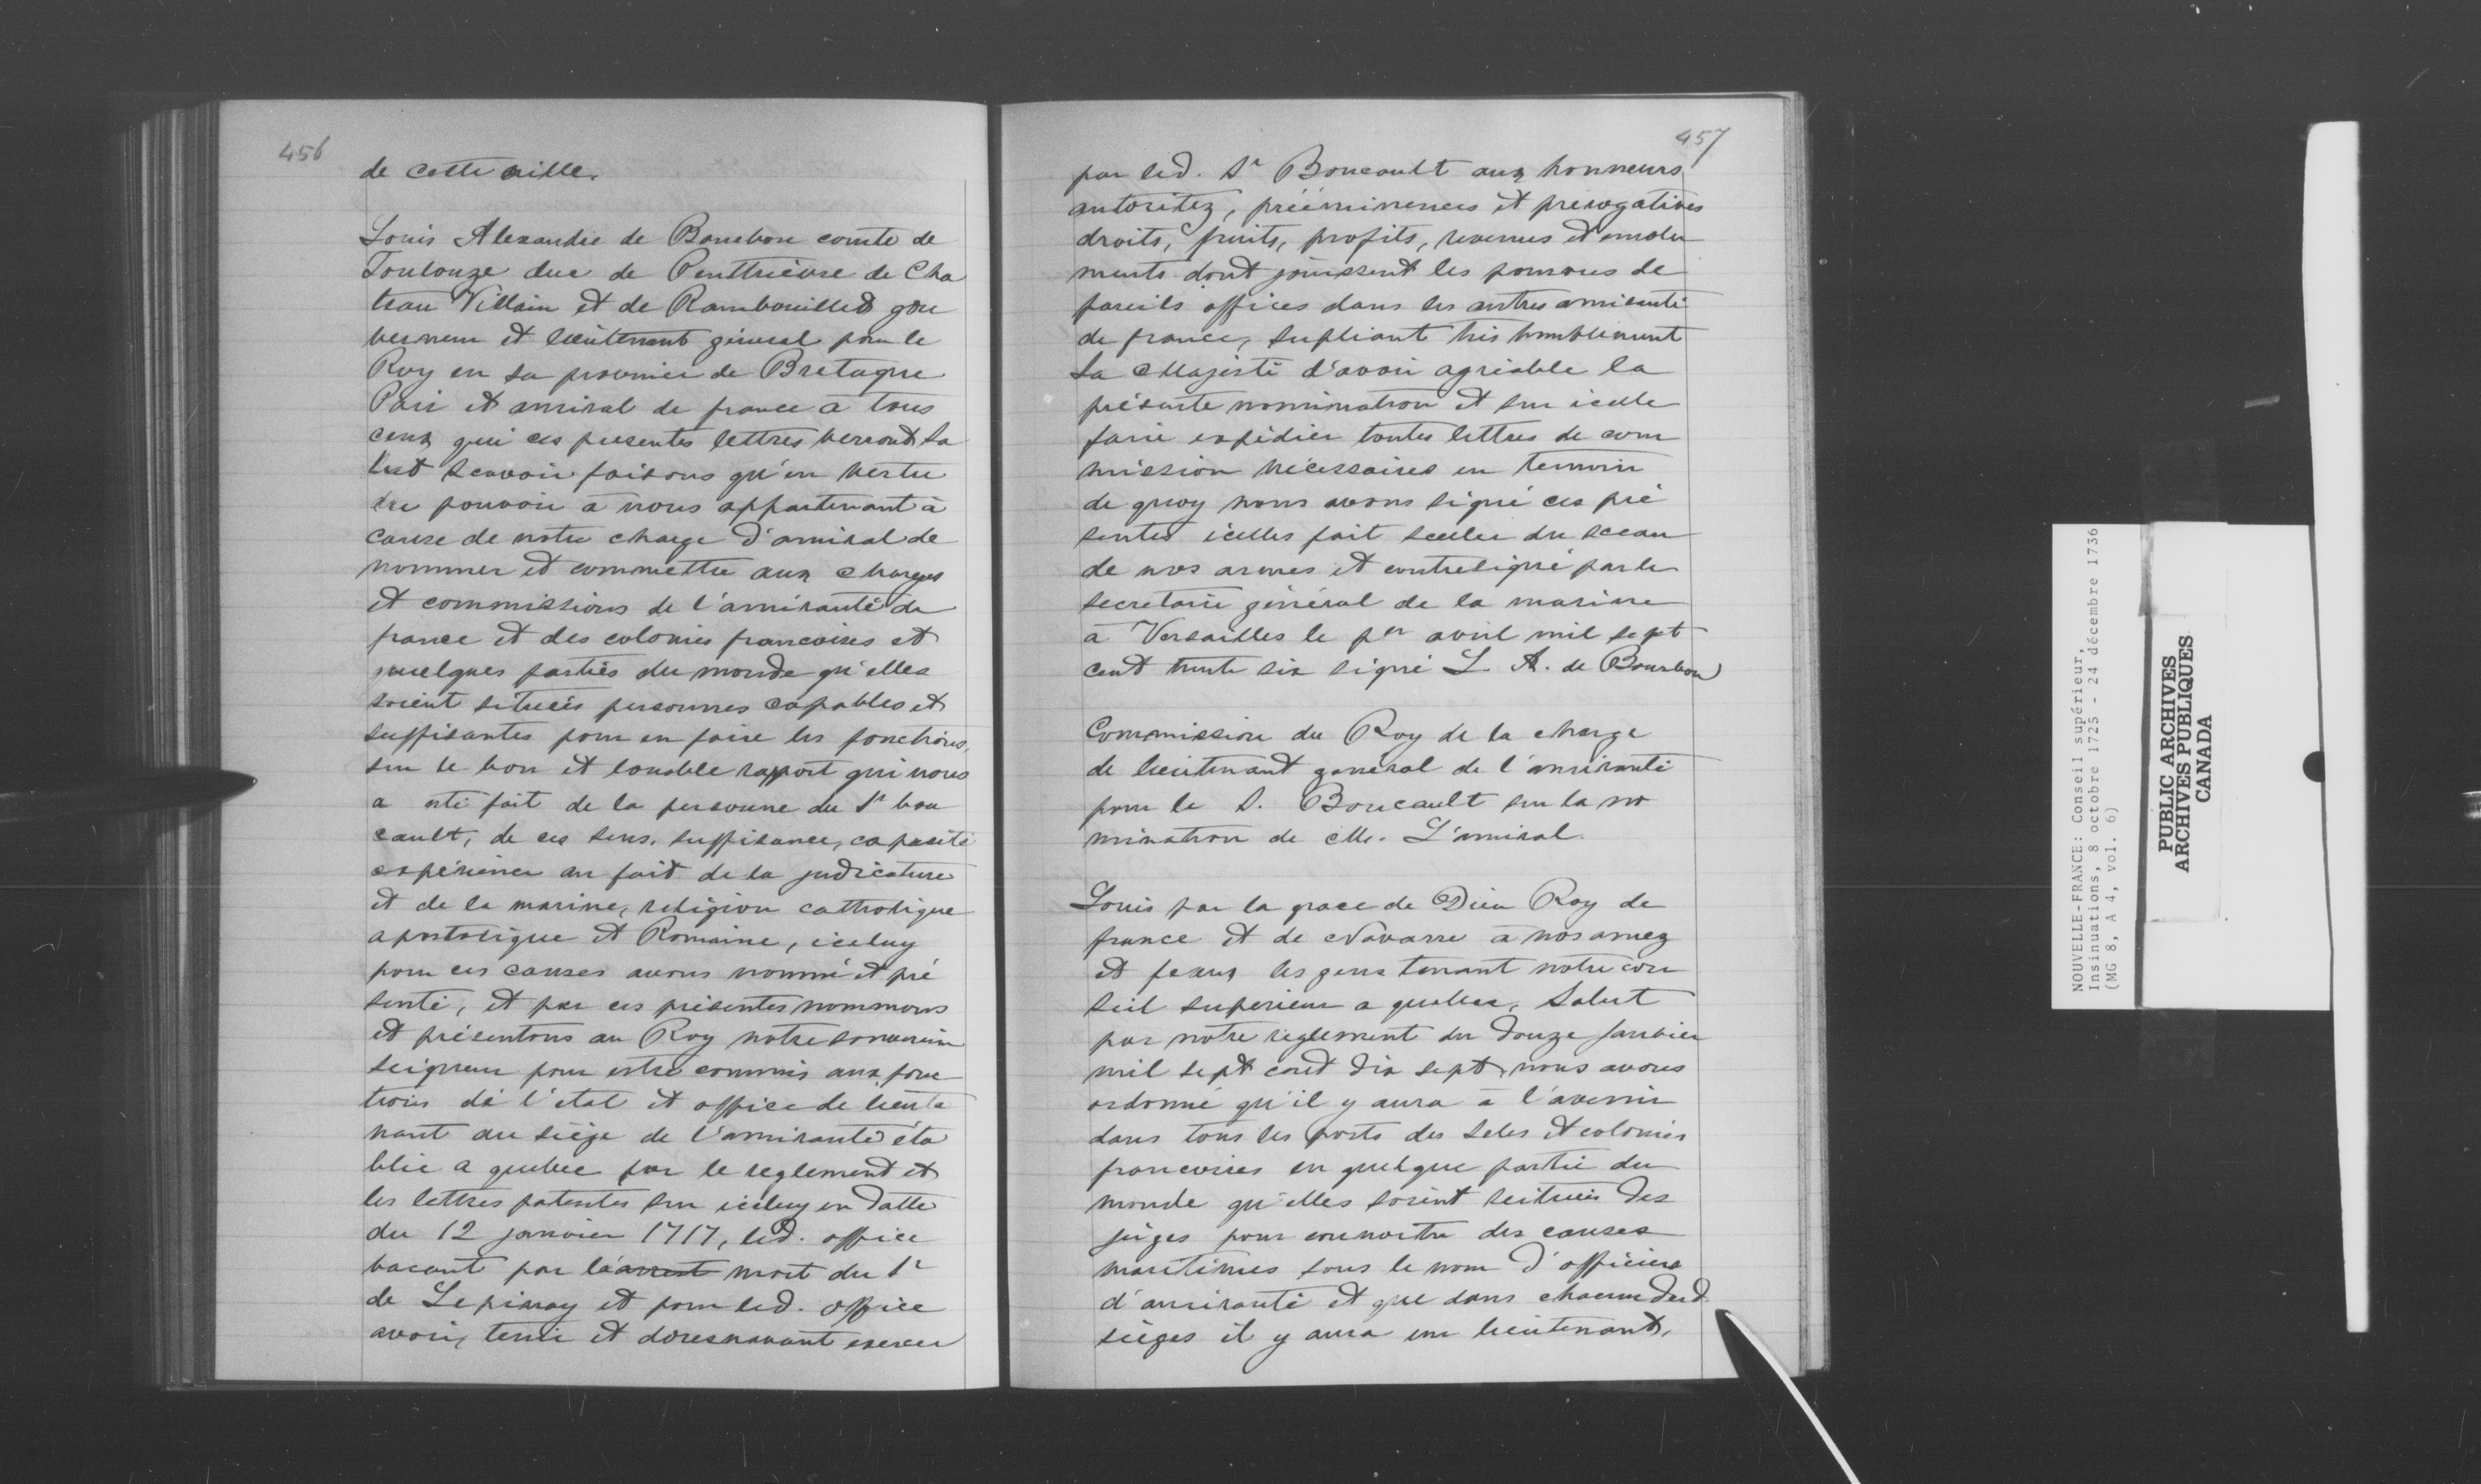 456
de cette ville.
Louis Alexandre de Bourbon comte de
Toulouze duc de Penthièvre de Cha
teau Villain et de Rambouillet gou
verneur et lieutenant général pour le
Roy en sa province de Bretagne
Pair et amiral de france à tous
ceux qui ces presentes lettres verront sa
lut scavoir faisons qu'en vertu
du pouvoir à nous appartenant à
cause de notre charge d'amiral de
nommer et commettre aux charges
et commissions de l'amirauté de
france et des colonies francoises et
quelques parties du monde qu'elles
soient situées personnes capables et
suffisantes pour en faire les fonctions,
sur le bon et louable rapport qui nous
a esté fait de la personne du Sr bou
cault, de ces sens, suffisance, capacité
expérience au fait de la judicature
et de la marine, religion catholique
apostolique et Romaine, iceluy
pour ces causes avons nommé et pré
senté, et par ces présentes nommons
et présentons au Roy notre souverain
seigneur pour estre commis aux fonc
tions de l'etat et office de lieute
nant au siège de l'amirauté éta
blie a quebec par le reglement et
les lettres patentes sur iceluy en datte
du 12 janvier 1717, led. office
vacant par la mort du Sr
de Lepinay et pour led. office
avoir, tenir et doresnavant exercer
457
par led. Sr Boucault aux honneurs
autoritez, prééminences et prérogatives
droits, fruits, profits, revenus et emolu
ments dont jouissent les pourvus de
pareils offices dans les autres amirauté
de france, supliant très humblement
Sa Majesté d'avoir agréable la
présente nomination et sur icelle
faire expédier toutes lettres de com
mission nécessaires en temoin
de quoy nous avons signé ces pré
sentes icelles fait sceller du sceau
de nos armes et contresigné par le
secretaire général de la marine
à Versailles le per avril mil sept
cent trente six signé L. A. de Bourbon
Commission du Roy de la charge
de lieutenant general de l'amirauté
pour le S. Boucault sur la no
mination de Mr. L'amiral.
Louis par la grace de Dieu Roy de
france et de Navarre à nos amez
et feaux les gens tenant notre con
seil superieur a quebec, Salut
par notre reglement du douze Janvier
mil sept cent dix sept, nous avons
ordonné qu'il y aura à l'avenir
dans tous les ports des Isles et colonies
francoises en quelque partie du
monde qu'elles soient scituées des
juges pour connoitre des causes
maritimes sous le nom d'officiers
d'amirauté et que dans chacun desd.
sièges il y aura un lieutenant,
NOUVELLE-FRANCE: Conseil supérieur,
Insinuations, 8 octobre 1725 - 24 décembre 1736
(MG 8, A 4, vol. 6)
PUBLIC ARCHIVES
ARCHIVES PUBLIQUES
CANADA